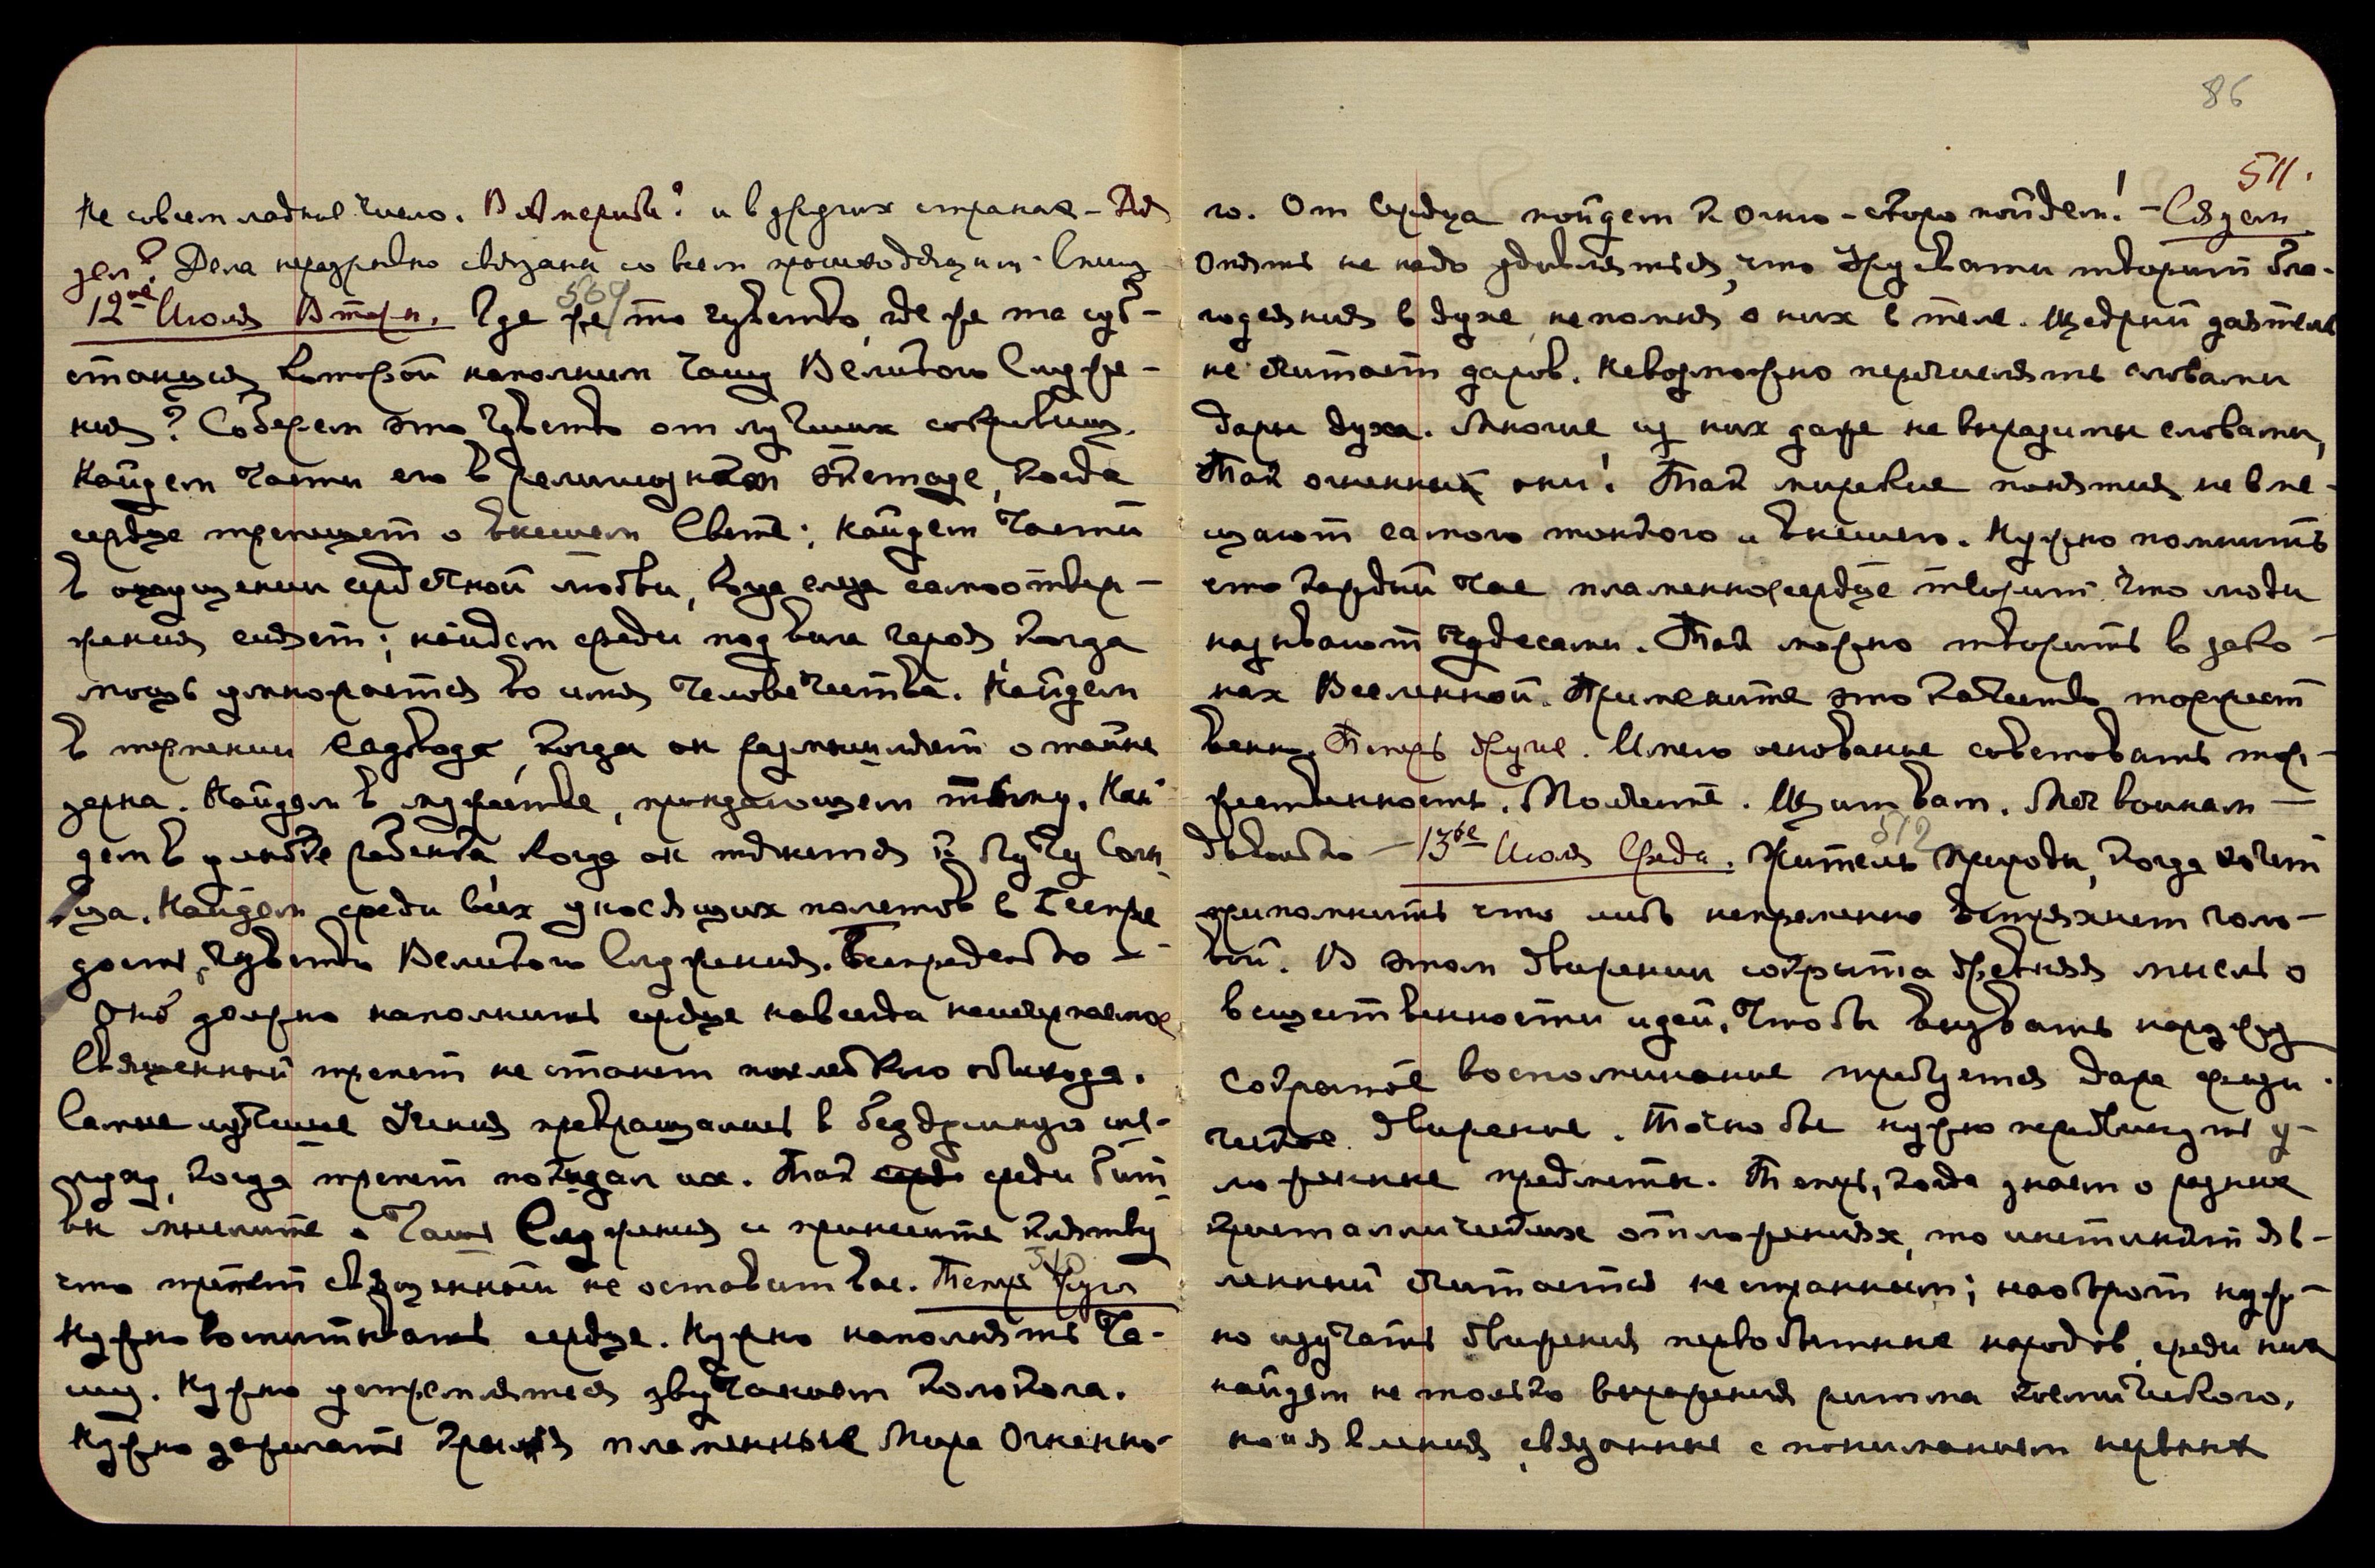 Не совсем ладное число. В Америке? и в других странах – Для
дел? Дела неразрывно связаны со всем происходящим. Сниз
12ое Июля Вторн. 509 Где же то чувство, где же та суб-
станция которой наполним Чашу Великого Служе-
ния? Соберем это чувство от лучших сокровищ.
Найдем части его в религиозном экстазе, когда
сердце трепещет о высшем Свете; найдем части
в ощущении сердечной любви, когда слеза самоотвер-
жения сияет; найдем среди подвига героя когда
мощь умножается во имя человечества. Найдем
в терпении садовода, когда он размышляет о тайне
зерна. Найдем в мужестве, пронзающем тьму. Най-
дем в улыбке ребенка, когда он тянется к лучу Солн-
ца. Найдем среди всех уносящих полетов в Беспре
дость, чувство Великого Служения. Беспредельно –
Оно должно наполнить сердце навсегда неисчерпаемое
Священный трепет не станет похлебкою обихода.
Самые лучшие Учения превращались в бездушную ше-
луху, когда трепет покидал их. Так среди бит
вы мыслите о Чаше Служения и принесите клятву
что трепет священный не оставит вас. Теперь другое 510
Нужно воспитывать сердце. Нужно наполнять Ча-
шу. Нужно устремляться звучанием колокола.
Нужно зажигать крылья пламенные Мира Огненно-
86
511.
го. От сердца пойдем к огню – скоро пойдем! – Сядем
Опять не надо удивляться, что Урусвати творит бла-
годеяния в духе, не помня о них в теле. Щедрый даятель
не считает даров. Невозможно перечислять словами
дары духа. Многие из них даже не выразимы словами,
Так огненны они! Так мирские понятия не вме-
щают самого тонкого и высшего. Нужно помнить
что каждый час пламенное сердце творит что люди
называют чудесами. Так можно творить в зако-
нах Вселенной. Примените это качество торжест
венно. Теперь другие. Имею основание советовать тор-
жественность. Молчите. Щит вам. Меч воинам –
довольно – 13ое Июля Среда. 512 Житель природы, когда хочет
припомнить что либо непременно встряхнет голо-
вой. В этом движении сокрыта древняя мысль о
вещественности идей. Чтобы вызвать наружу
сокрытое воспоминание требуется даже физи-
ческое движение. Точно бы нужно передвинуть у-
ложенные предметы. Теперь, когда знаем о разных
кристаллических отложениях, то инстинкт яв-
ленный считается не странным; наоборот нуж-
но изучать движения первобытных народов, среди них
найдем не только выражения ритма космического,
но и явления, связанные с пониманием нервных